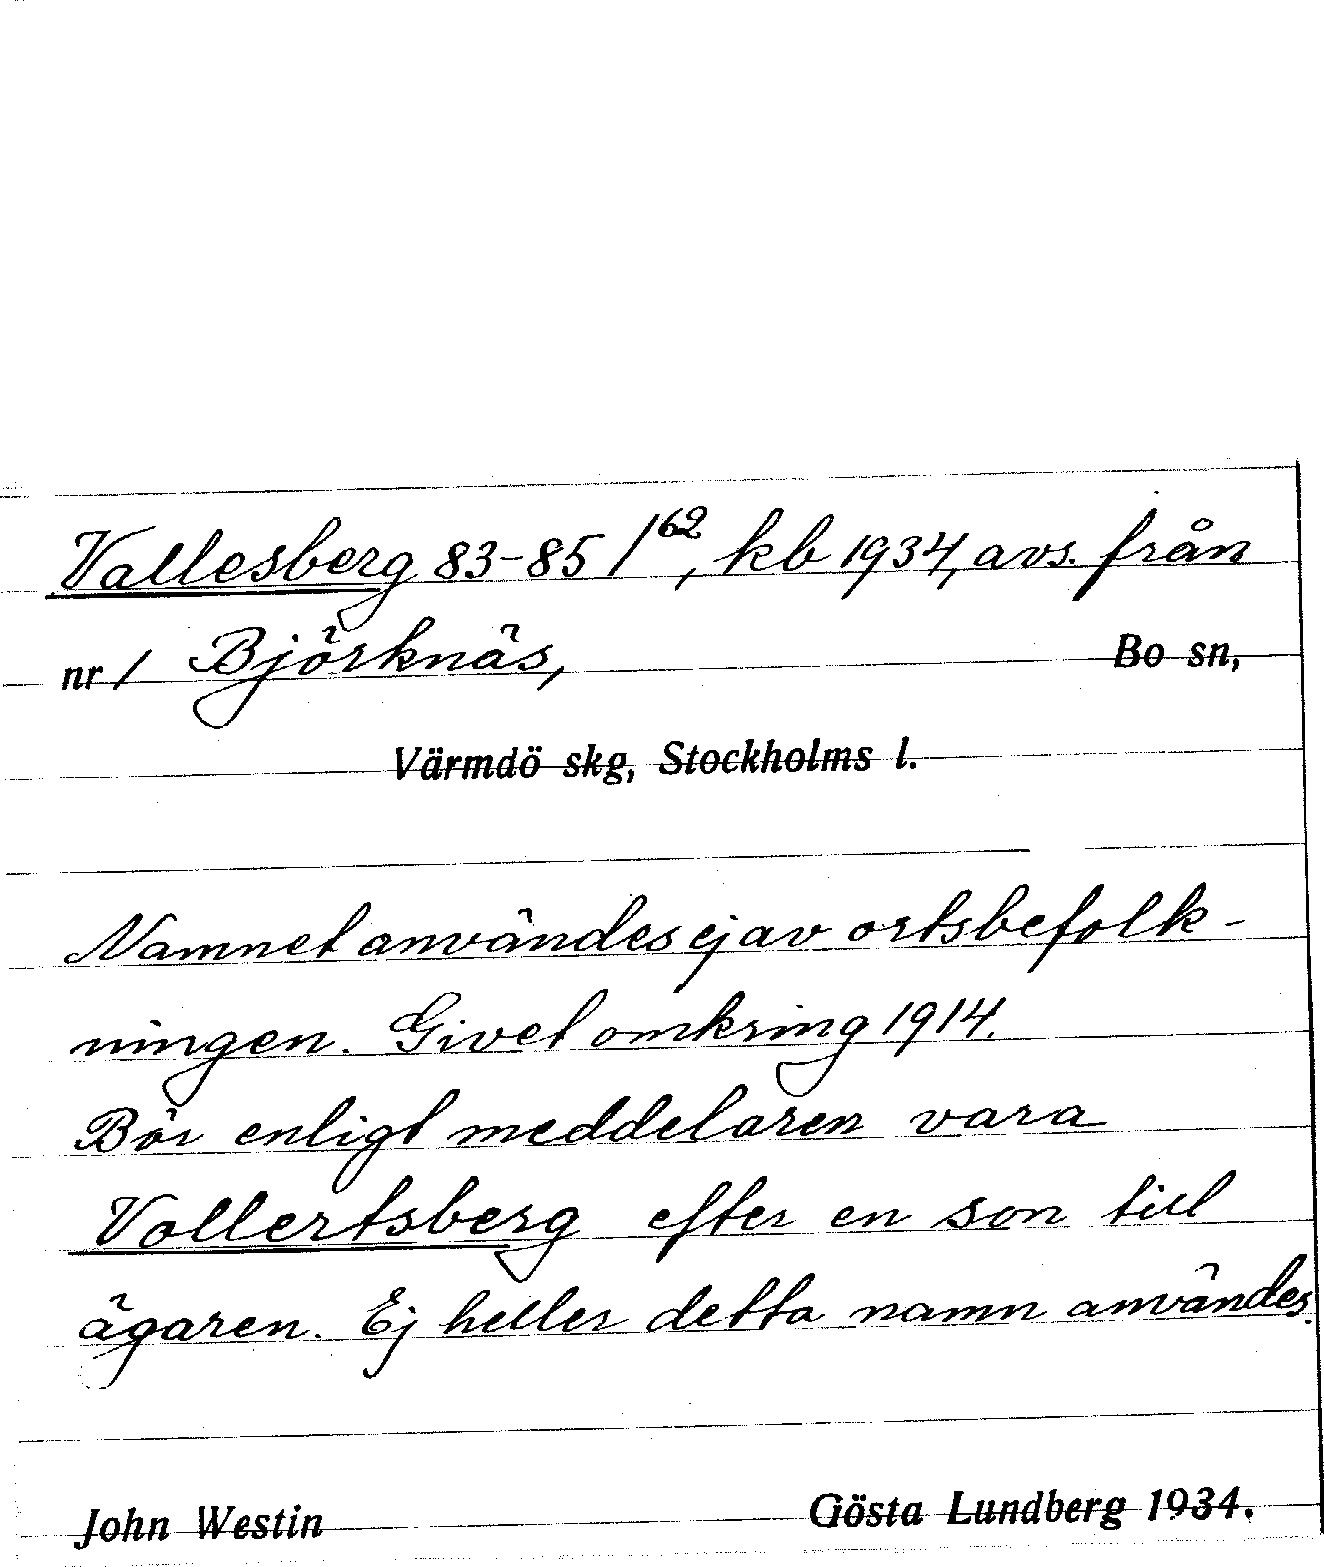 Vallesberg 83-85 /¹⁶², kb 1934, avs. från
nr 1 Björknäs, Bo sn,
Värmdö skg, Stockholms l.
Namnet användes ej av ortsbefolk-
ningen. Givet omkring 1914.
Bör enligt meddelaren vara
Vollertsberg efter en son till
ägaren. Ej heller detta namn användes.
John Westin Gösta Lundberg 1934.